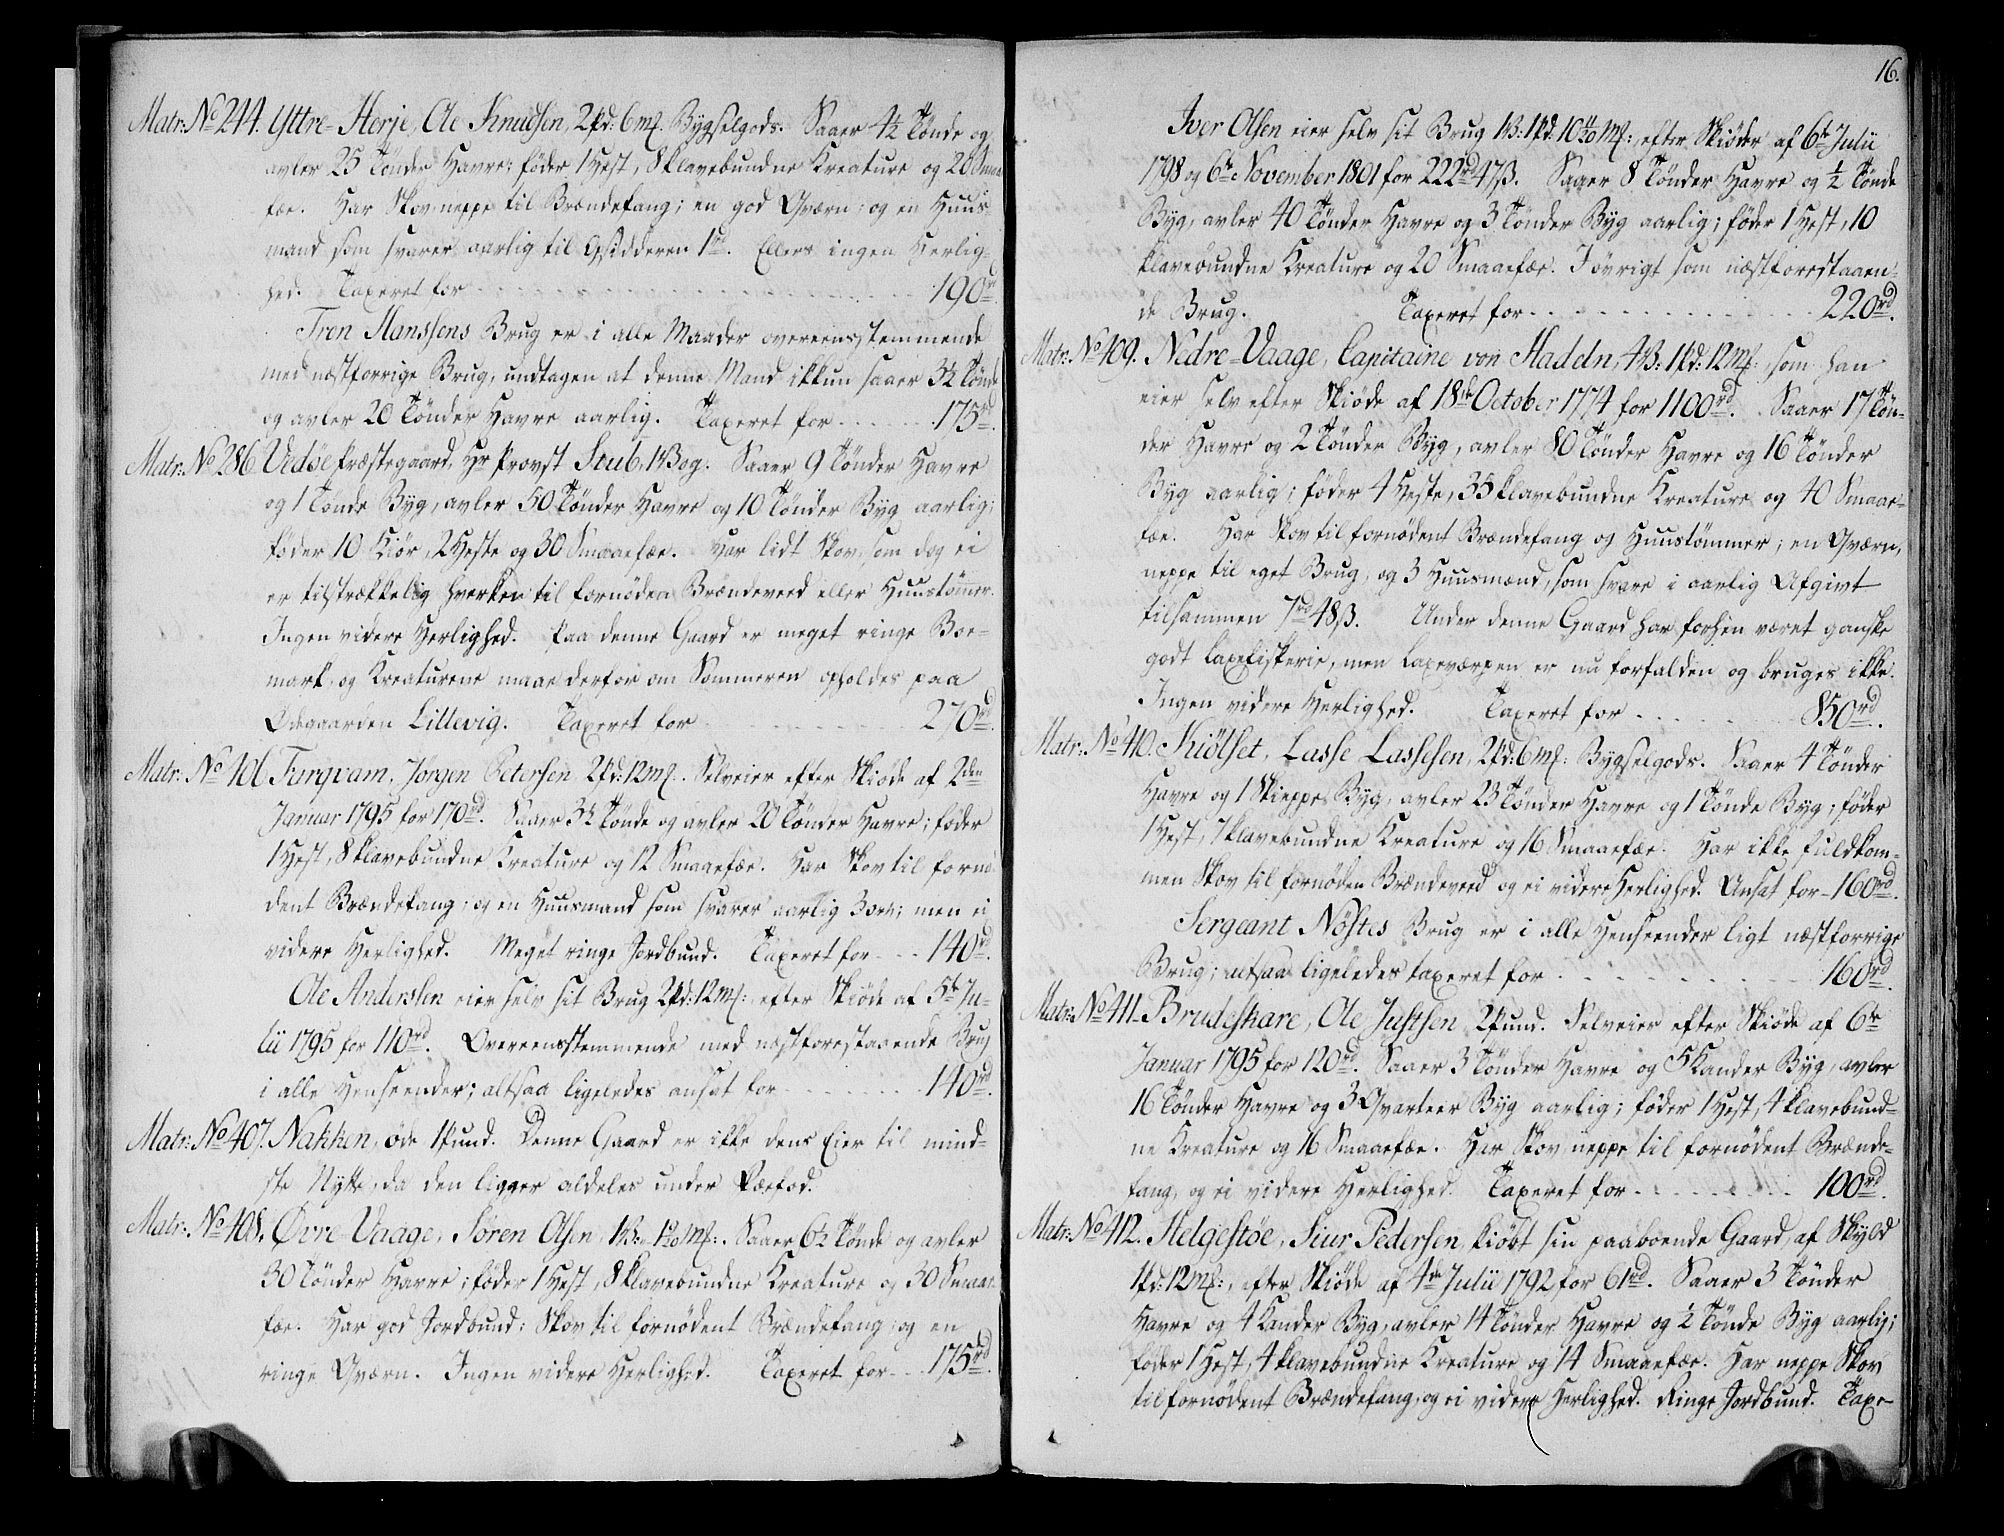 Matr: No 244. Yttre-Herje, Ole Knudsen, 2pd: 6m[. Bygselgods. Saaer 4½ Tønde og
avler 25 Tønder Havre; føder 1 Hest, 8 klavebundne Kreature og 20 Smaa-
fæe. Har Skov neppe til Brændefang; en god Qværn; og en Huus-
mand som svarer aarlig til Opsidderen 1rd. Ellers ingen Herlig-
hed. Taxeret for - - - 190rd.
Tren Hanssens Brug er i alle Maader overeensstemmende
med næstforrige Brug, undtagen at denne Mand ikkun saaer 3½ Tønde
og avler 20 Tønder Havre aarlig. Taxeret for - - - 175rd.
Matr: No 286. Vedøe Præstegaard, Hr Provst Stub, 1 Vog. Saaer 9 Tønder Havre
og 1 Tønde Byg, avler 50 Tønder Havre og 10 Tønder Byg aarlig;
føder 10 Kiør, 2 Heste og 30 Smaaefæe. Har lidt Skov, som dog ei
er tilstrækkelig hverken til fornøden Brændeveed eller Huustømmer.
Ingen videre Herlighed. Paa denne Gaard er meget ringe Boe-
mark, og Kreaturene maae derfor om Sommeren opholdes paa
Ødegaarden Littevig. Taxeret for - - - 270rd.
Matr: No 406. Turqvam, Jørgen Petersen, 2pd: 12m[. Selveier efter Skiøde af 2den
Januar 1795 for 170rd. Saaer 3½ Tønde og avler 20 Tønder Havre; føder
1 Hest, 8 klavebundne Kreature og 12 Smaaefæe. Har Skov til fornø-
dent Brændefang; og en Huusmand som svarer aarlig 3 ort; men ei
videre Herlighed. Meget ringe Jordbund. Taxeret for - - - 140rd.
Ole Anderssen eier selv sit Brug 2pd: 12m[: efter Skiøde af 5te Ju-
lii 1795 for 110rd. Overeensstemmende med næstforestaaende Brug
i alle Henseender; altsaa ligeledes ansat for - - - 140rd.
Matr: No 407. Nakken, øde 1 Pund. Denne Gaard er ikke dens Eier til mind-
ste Nytte, da den ligger aldeles under Kæefod.
Matr: No 408. Øvre-Vaage, Søren Olsen, 1V: 1 9/20 m[: Saaer 6½ Tønde og avler
30 Tønder Havre; føder 1 Hest, 8 klavebundne Kreature og 30 Smaae-
fæe. Har god Jordbund; Skov til fornødent Brændefang; og en
ringe Qværn. Ingen videre Herlighed. Taxeret for - - - 175rd.
16.
Iver Olsen eier selv sit Brug 1V: 1pd: 10 11/20 m[: efter Skiøder af 6te Julii
1798 og 6te November 1801 for 222rd 47ß. Saaer 8 Tønder Havre og ½ Tønde
Byg, avler 40 Tønder Havre og 3 Tønder Byg aarlig; føder 1 Hest, 10
klavebundne Kreature og 20 Smaaefæe. I øvrigt som næstforestaaen-
de Brug. Taxeret for - - - 220rd.
Matr: No 409. Nedre-Vaage, Capitaine von Hadeln, 4V: 1pd: 12m[:, som han
eier selv efter Skiøde af 18de October 1774 for 1100rd. Saaer 17 Tøn-
der Havre og 2 Tønder Byg, avler 80 Tønder Havre og 16 Tønder
Byg aarlig; føder 4 Heste, 35 klavebundne Kreature og 40 Smaae-
fæe. Har Skov til fornødent Brændefang og Huustømmer; en Qværn,
neppe til eget Brug, og 3 Huusmænd, som svare i aarlig Afgivt
tilsammen 7rd 48ß. Under denne Gaard har forhen været ganske
godt Laxefiskerie, men Laxeværpen er nu forfalden og bruges ikke.
Ingen videre Herlighed. Taxeret for - - - 850rd.
Matr: No 410. Kiølset, Lasse Lassesen, 2pd: 6m[: Bygselgods. Saaer 4 Tønder
Havre og 1 Skieppe Byg, avler 23 Tønder Havre og 1 Tønde Byg; føder
1 Hest, 7 klavebundne Kreature og 16 Smaaefæe. Har ikke fuldkom-
men Skov til fornøden Brændeveed og ei videre Herlighed. Ansat for - 160rd.
Sergeant Nøstes Brug er i alle Henseender ligt næstforrige
Brug; altsaa ligeledes taxeret for - - - 160rd.
Matr: No 411. Brudeskare, Ole Justsen, 2 Pund. Selveier efter Skiøde af 6te
Januar 1795 for 120rd. Saaer 3 Tønder Havre og 5 Kander Byg, avler
16 Tønder Havre og 3 Qvarteer Byg aarlig; føder 1 Hest, 4 klavebund-
ne Kreature og 16 Smaaefæe. Har Skov neppe til fornødent Brænde-
fang, og ei videre Herlighed. Taxeret for - - - 100rd.
Matr: No 412. Helgestøe, Siur Pedersen, kiøbt sin paaboende Gaard, af Skyld
1pd: 12m[:, efter Skiøde af 4de Julii 1792 for 61rd. Saaer 3 Tønder
Havre og 4 Kander Byg, avler 14 Tønder Havre og ½ Tønde Byg aarlig;
føder 1 Hest, 4 klavebundne Kreature og 14 Smaaefæe. Har neppe Skov
til fornødent Brændefang, og ei videre Herlighed. Ringe Jordbund. Taxe-